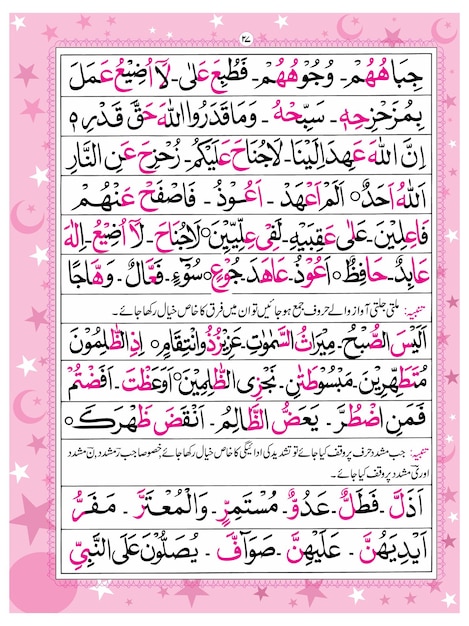 ٢٧
جِبَاهُهُمْ۔ وُجُوْهُهُمْ۔ فَطُبِعَ عَلٰى۔ لَاۤ اُضِيْعُ عَمَلَ
بِمُزَحْزِحِهٖ۔ سَبِّحْهُ۔ وَمَا قَدَرُوا اللّٰهَ حَقَّ قَدْرِهٖ
اِنَّ اللّٰهَ عَهِدَ اِلَيْنَا۔ لَاجُنَاحَ عَلَيْكُمْ۔ زُحْزِحَ عَنِ النَّارِ
اَللّٰهُ اَحَدٌ۝ اَلَمْ اَعْهَدْ۔ اَعُوْذُ۔ فَاصْفَحْ عَنْهُمْ
فَاعِلِيْنَ۔ عَلٰى عَقِبَيْهِ۔ لَفِيْ عِلِّيِّيْنَ۝ لَاجُنَاحَ۔ لَاۤ اُضِيْعُ۔ اِلٰهَ
عَابِدٌ۔ حَافِظٌ۝ اَعُوْذُ۔ عَاهَدَ۔ جُوْعٍ۔ سُوْٓءٍ۔ فَعَّالٌ۔ وَهَّاجًا
تنبیہ: ملتی جلتی آواز والے حروف جمع ہو جائیں تو ان میں فرق کا خاص خیال رکھا جائے۔
اَلَيْسَ الصُّبْحُ۔ مِيْرَاثُ السَّمٰوٰتِ۔ عَزِيْزٌ ذُو انْتِقَامٍ۝ اِذِ الظّٰلِمُوْنَ
مُتَطَهِّرِيْنَ۔ مَبْسُوْطَتٰنِ۔ نَجْزِي الظّٰلِمِيْنَ۝ اَوَعَظْتَ۔ اَفَضْتُمْ
فَمَنِ اضْطُرَّ۔ يَعَضُّ الظَّالِمُ۔ اَنْقَضَ ظَهْرَكَ۝
تنبیہ: جب مشدد حرف پر وقف کیا جائے تو تشدید کی ادائیگی کا خاص خیال رکھا جائے خصوصاً جب ر مشدد، ن مشدد
اور ی مشدد پر وقف کیا جائے۔
اَذَلَّ۔ فَطَلٌّ۔ عَدُوٌّ۔ مُسْتَمِرٌّ۔ وَالْمُعْتَرَّ۔ مَفَرُّ
اَيْدِيَهُنَّ۔ عَلَيْهِنَّ۔ صَوَآفَّ۔ يُصَلُّوْنَ عَلَى النَّبِيِّ